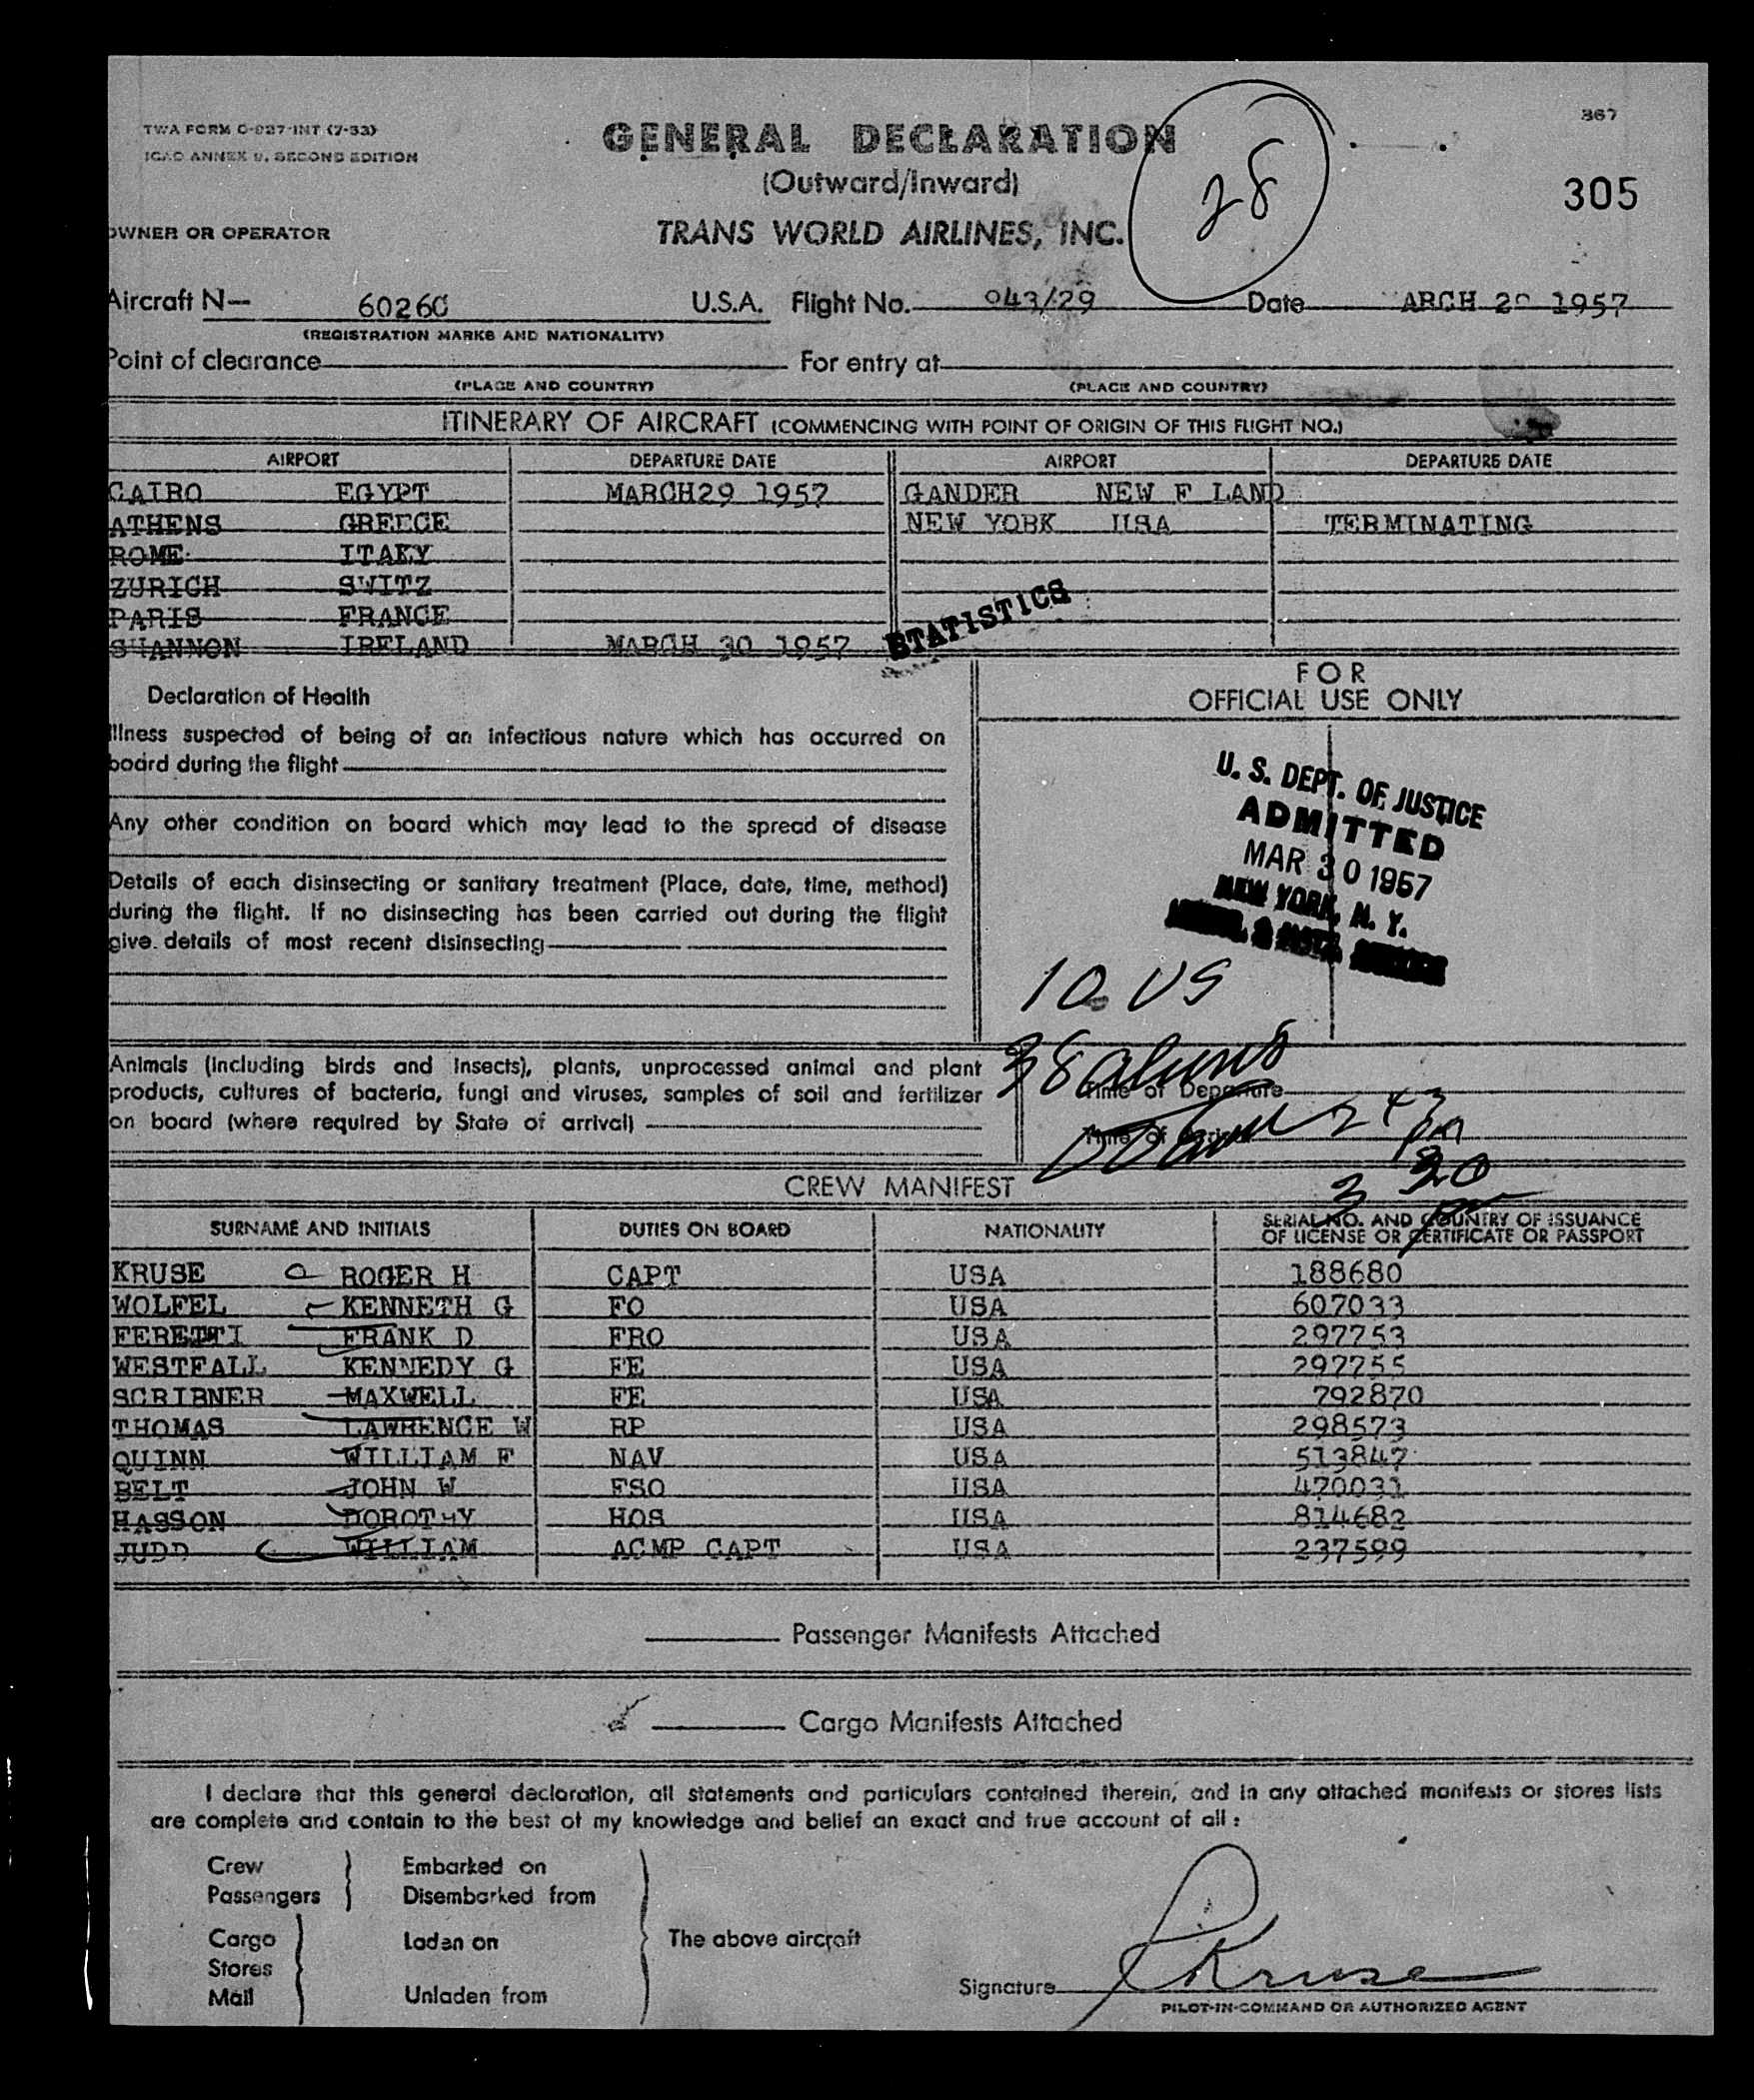 TWA FORM O-927-INT (7-53)
ICAO ANNEX 9, SECOND EDITION
GENERAL DECLARATION
(Outward/Inward)
TRANS WORLD AIRLINES, INC.
28
367
305
OWNER OR OPERATOR
Aircraft N— 6026C U.S.A. Flight No. 043/29 Date ARCH 29 1957
(REGISTRATION MARKS AND NATIONALITY)
Point of clearance For entry at
(PLACE AND COUNTRY) (PLACE AND COUNTRY)
ITINERARY OF AIRCRAFT (COMMENCING WITH POINT OF ORIGIN OF THIS FLIGHT NO.)
AIRPORT DEPARTURE DATE AIRPORT DEPARTURE DATE
CAIRO EGYPT MARCH29 1957 GANDER NEW F LAND
ATHENS GREECE NEW YORK USA TERMINATING
ROME ITAKY
ZURICH SWITZ
PARIS FRANCE
SHANNON IRELAND MARCH 30 1957
STATISTICS
FOR
OFFICIAL USE ONLY
Declaration of Health
Illness suspected of being of an infectious nature which has occurred on
board during the flight
Any other condition on board which may lead to the spread of disease
Details of each disinsecting or sanitary treatment (Place, date, time, method)
during the flight. If no disinsecting has been carried out during the flight
give details of most recent disinsecting
U. S. DEPT. OF JUSTICE
ADMITTED
MAR 30 1957
NEW YORK, N. Y.
10 US
38 aliens
Animals (including birds and insects), plants, unprocessed animal and plant
products, cultures of bacteria, fungi and viruses, samples of soil and fertilizer
on board (where required by State of arrival)
Time of Departure
Time of
CREW MANIFEST
SURNAME AND INITIALS DUTIES ON BOARD NATIONALITY SERIAL NO. AND COUNTRY OF ISSUANCE
OF LICENSE OR CERTIFICATE OR PASSPORT
KRUSE ROGER H CAPT USA 188680
WOLFEL KENNETH G FO USA 607033
FERETTI FRANK D FRO USA 297753
WESTFALL KENNEDY G FE USA 297755
SCRIBNER MAXWELL FE USA 792870
THOMAS LAWRENCE W RP USA 298573
QUINN WILLIAM F NAV USA 513847
BELT JOHN W FSO USA 470031
HASSON DOROTHY HOS USA 814682
JUDD WILLIAM ACMP CAPT USA 237599
Passenger Manifests Attached
Cargo Manifests Attached
I declare that this general declaration, all statements and particulars contained therein, and in any attached manifests or stores lists
are complete and contain to the best of my knowledge and belief an exact and true account of all:
Crew Embarked on
Passengers Disembarked from
Cargo Laden on The above aircraft
Stores
Mail Unladen from
Signature Kruse
PILOT-IN-COMMAND OR AUTHORIZED AGENT